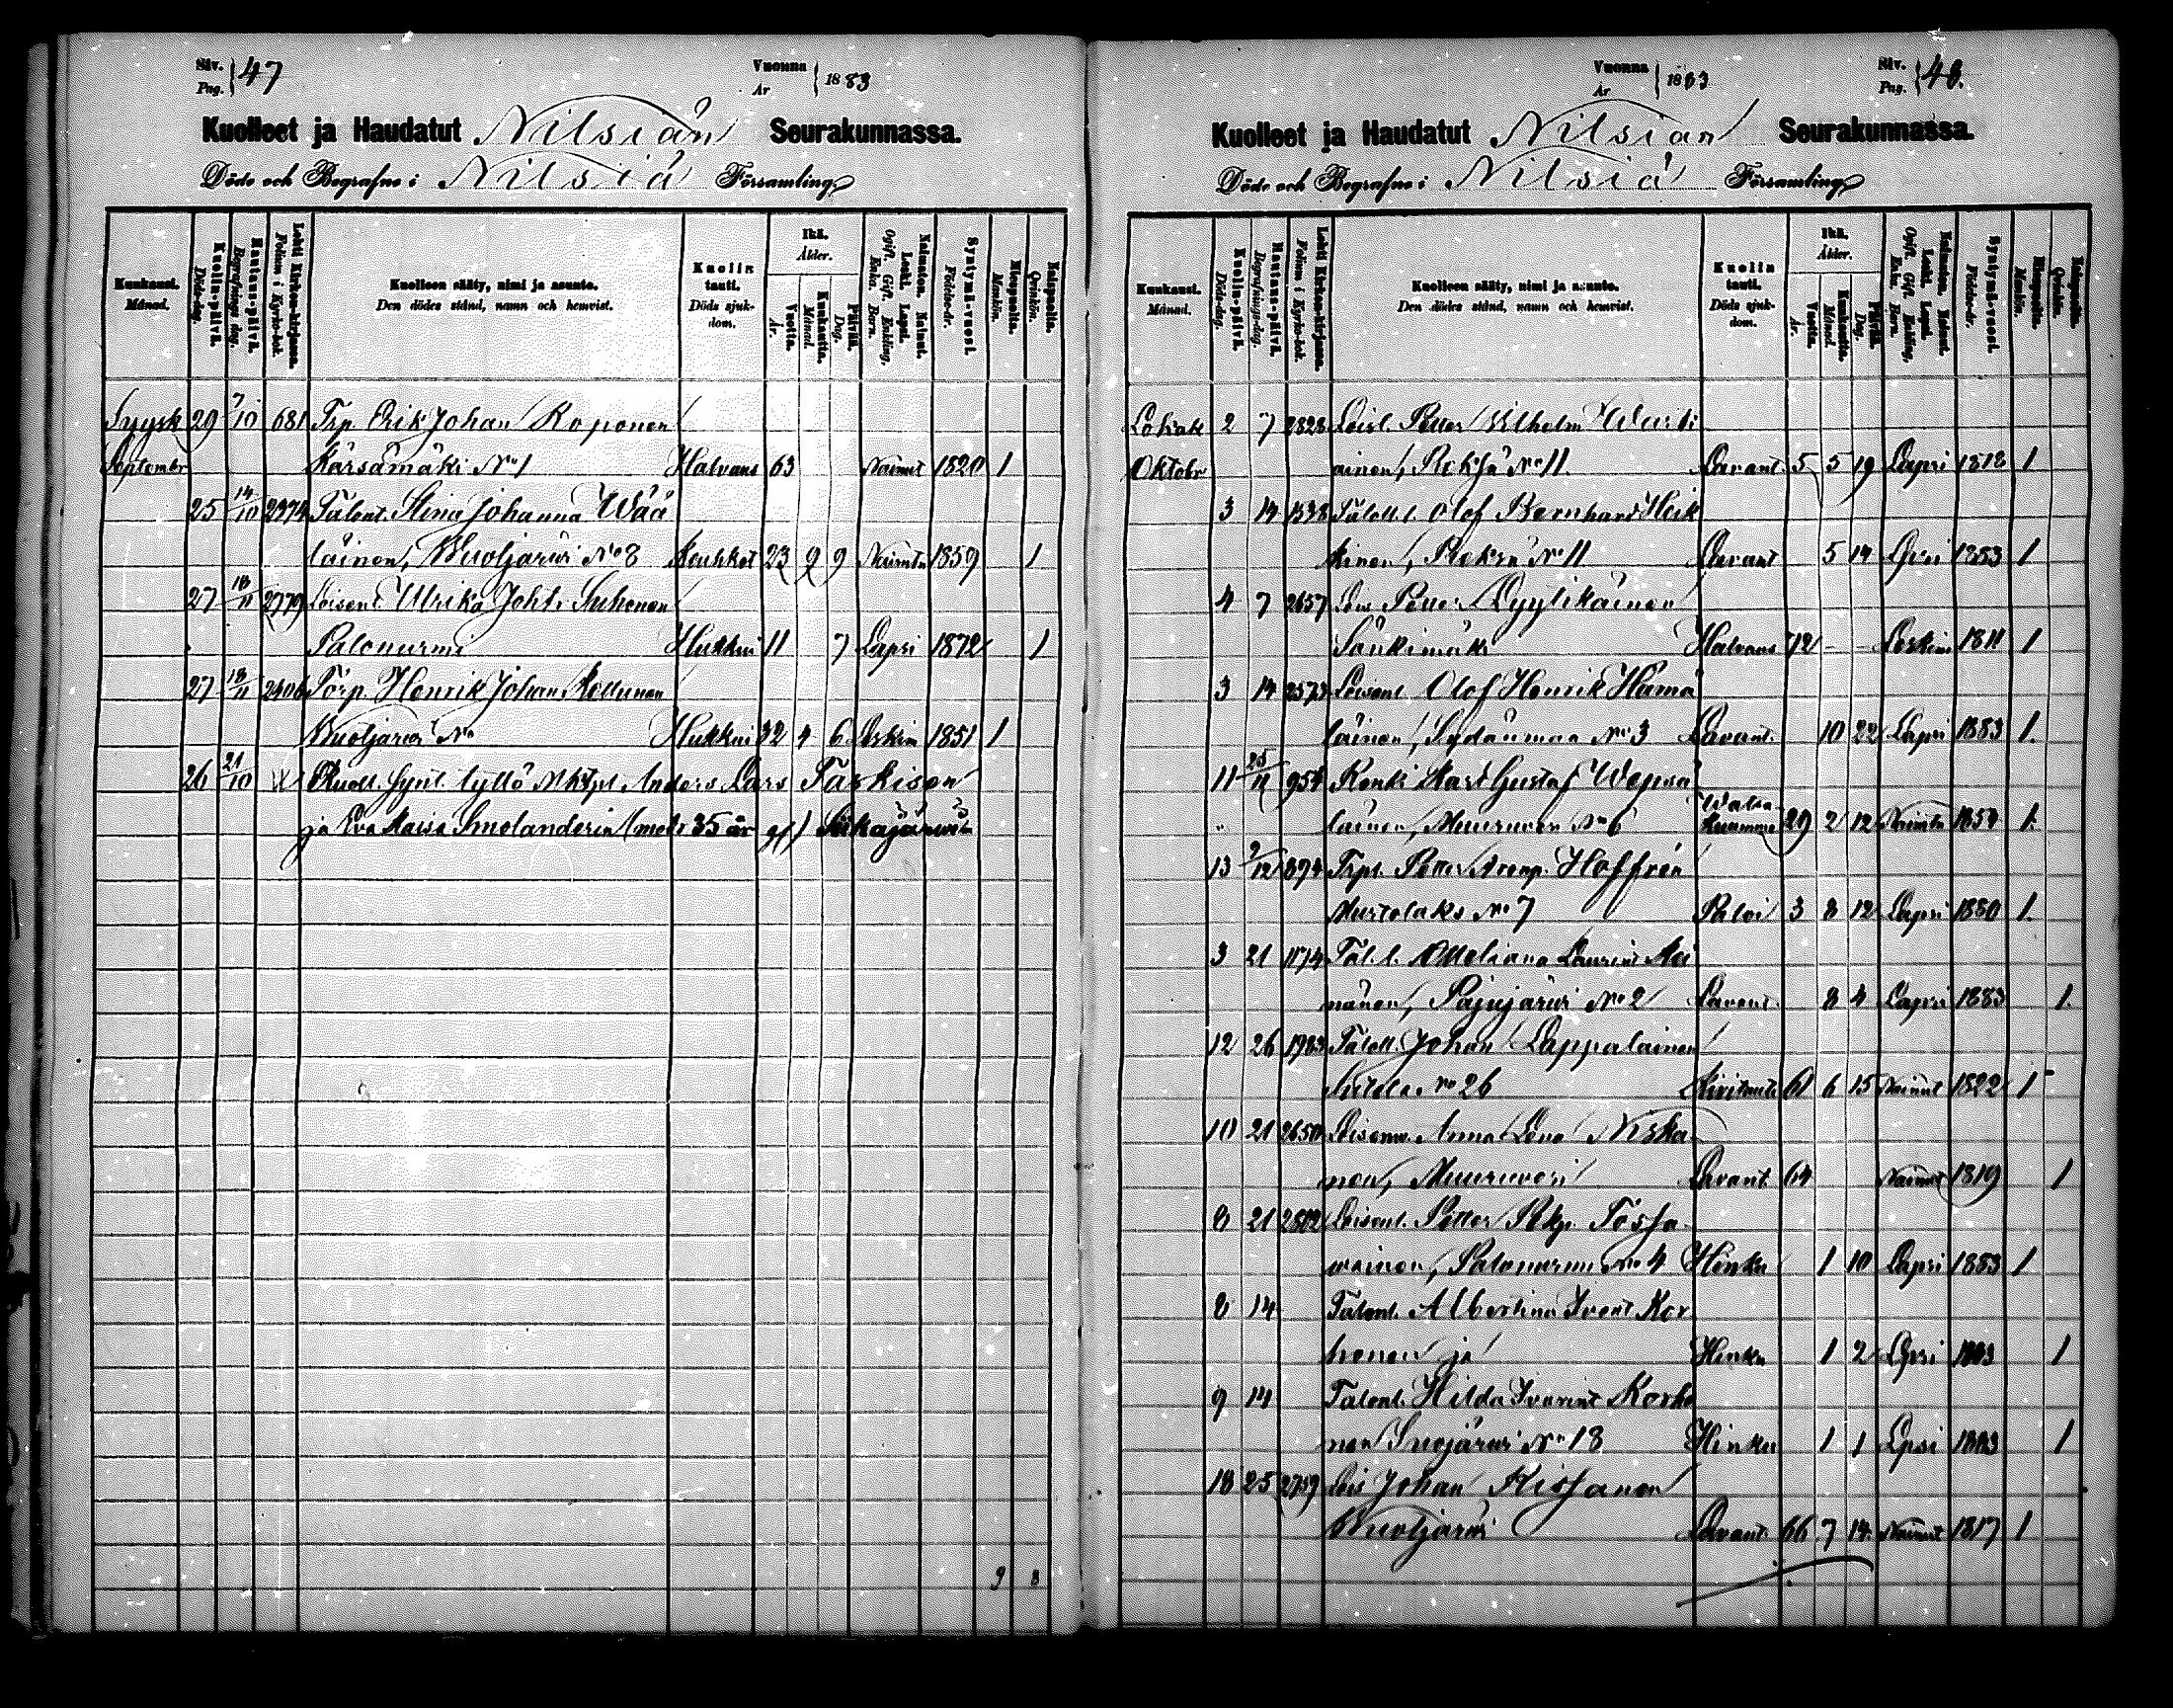 Siv. Pag. } 47
Vuonna År } 1883
Kuolleet ja Haudatut Nilsiän Seurakunnassa.
Döde och Begrafne i Nilsiä Församling
Kuukausi. Månad.
Kuolin-päivä. Döds-dag.
Hautaus-päivä. Begrafnings-dag.
Lehti Kirkon-kirjassa. Folium i Kyrko-bok.
Kuolleen sääty, nimi ja asunto. Den dödes stånd, namn och hemvist.
Kuolin tauti. Döds sjuk-dom.
Ikä. Ålder.
Vuotta. År.
Kuukautta. Månad.
Päivää. Dag.
Naimaton. Nainut. Leski. Lapsi. Ogift. Gift. Enkling, Enka. Barn.
Syntymä-vuosi. Födelse-år.
Miespuolia. Mankön.
Vaimopuolia. Qvinkön.
Syysk 29 7/10 681 Trp. Erik Johan Koponen
Septembr Kärsämäki No 1 Halvaus 63 Nainut 1820 1
25 14/10 2374 Talont. Stina Johanna Wää
läinen, Wuotjärwi No 8 Keuhkot 23 9 9 Naimtn 1859 1
27 18/11 2779 Loisent. Ulrika Joht. Suhonen
Palonurmi Hukkui 11 7 Lapsi 1872 1
27 18/11 2406 Torp. Henrik Johan Kettunen
Wuotjärwi No Hukkui 32 4 6 Leskin 1851 1
26 21/10 Kuoll. synt. tyttö Anders Lars Tarkisen
ja Eva Kaisa Smolanderin (moder 35 år gf) Siikajärwi 3
9 8
Vuonna År } 1883
Siv. Pag. } 48.
Kuolleet ja Haudatut Nilsiän Seurakunnassa.
Döde och Begrafne i Nilsiä Församling
Kuukausi. Månad.
Kuolin-päivä. Döds-dag.
Hautaus-päivä. Begrafnings-dag.
Lehti Kirkon-kirjassa. Folium i Kyrko-bok.
Kuolleen sääty, nimi ja asunto. Den dödes stånd, namn och hemvist.
Kuolin tauti. Döds sjuk-dom.
Ikä. Ålder.
Vuotta. År.
Kuukautta. Månad.
Päivää. Dag.
Naimaton. Nainut. Leski. Lapsi. Ogift. Gift. Enkling, Enka. Barn.
Syntymä-vuosi. Födelse-år.
Miespuolia. Mankön.
Vaimopuolia. Qvinkön.
Lokak 2 7 2828 Loisl. Petter Vilhelm Warti
Oktobr ainen, Reksä No 11 Lavant. 5 5 19 Lapsi 1878 1
3 14 1538 Taloll. l. Olof Bernhard Heik
kinen, Reksä No 11 Lavant 5 14 Lpsi 1883 1
4 7 2657 Lois Petter Lyytikäinen
Sänkimäki Halvaus 72 - - Leskim 1811 1
3 14 2573 Loisenl. Olof Henrik Hämä
läinen, Sydänmaa No 3 Lavant. 10 22 Lapsi 1883 1.
11 25/11 954 Renki Karl Gustaf Wepsä
läinen, Muuruwesi No 6 29 2 12 Naimtn 1854 1.
13 2/12 894 Trpl. Petter Hoffrén
Murtolaks No 7 Paloi 3 8 12 Lapsi 1880 1.
3 21 1174 Tal. l. Ottoliana Laurint. As
nänen, Pajujärwi No 2 Lavant. 8 4 Lapsi 1883 1.
12 26 1983 Taloll. Johan Lappalainen
No 26 Kivitauti 61 6 15 Nainut 1822 1
10 21 2650 Loisenw. Anna Lena Niska
nen, Muuruwesi Lavant. 64 Nainut 1819 1
8 21 2802 Loisenl. Petter Pekp. Tossa
wainen, Palonurmi No 4 Hinku 1 10 Lapsi 1883 1
8 14 Talont. Albertina Ivant Kor
honen ja Hinku 1 2 Lpsi 1883 1
9 14 Talont. Hilda Ivarint Korho
nen Suojärwi No 18 Hinku 1 1 Lpsi 1883 1
18 25 2759 Lois Johan Kissanen
Wuotjärwi Lavant. 66 7 14 Nainut 1817 1